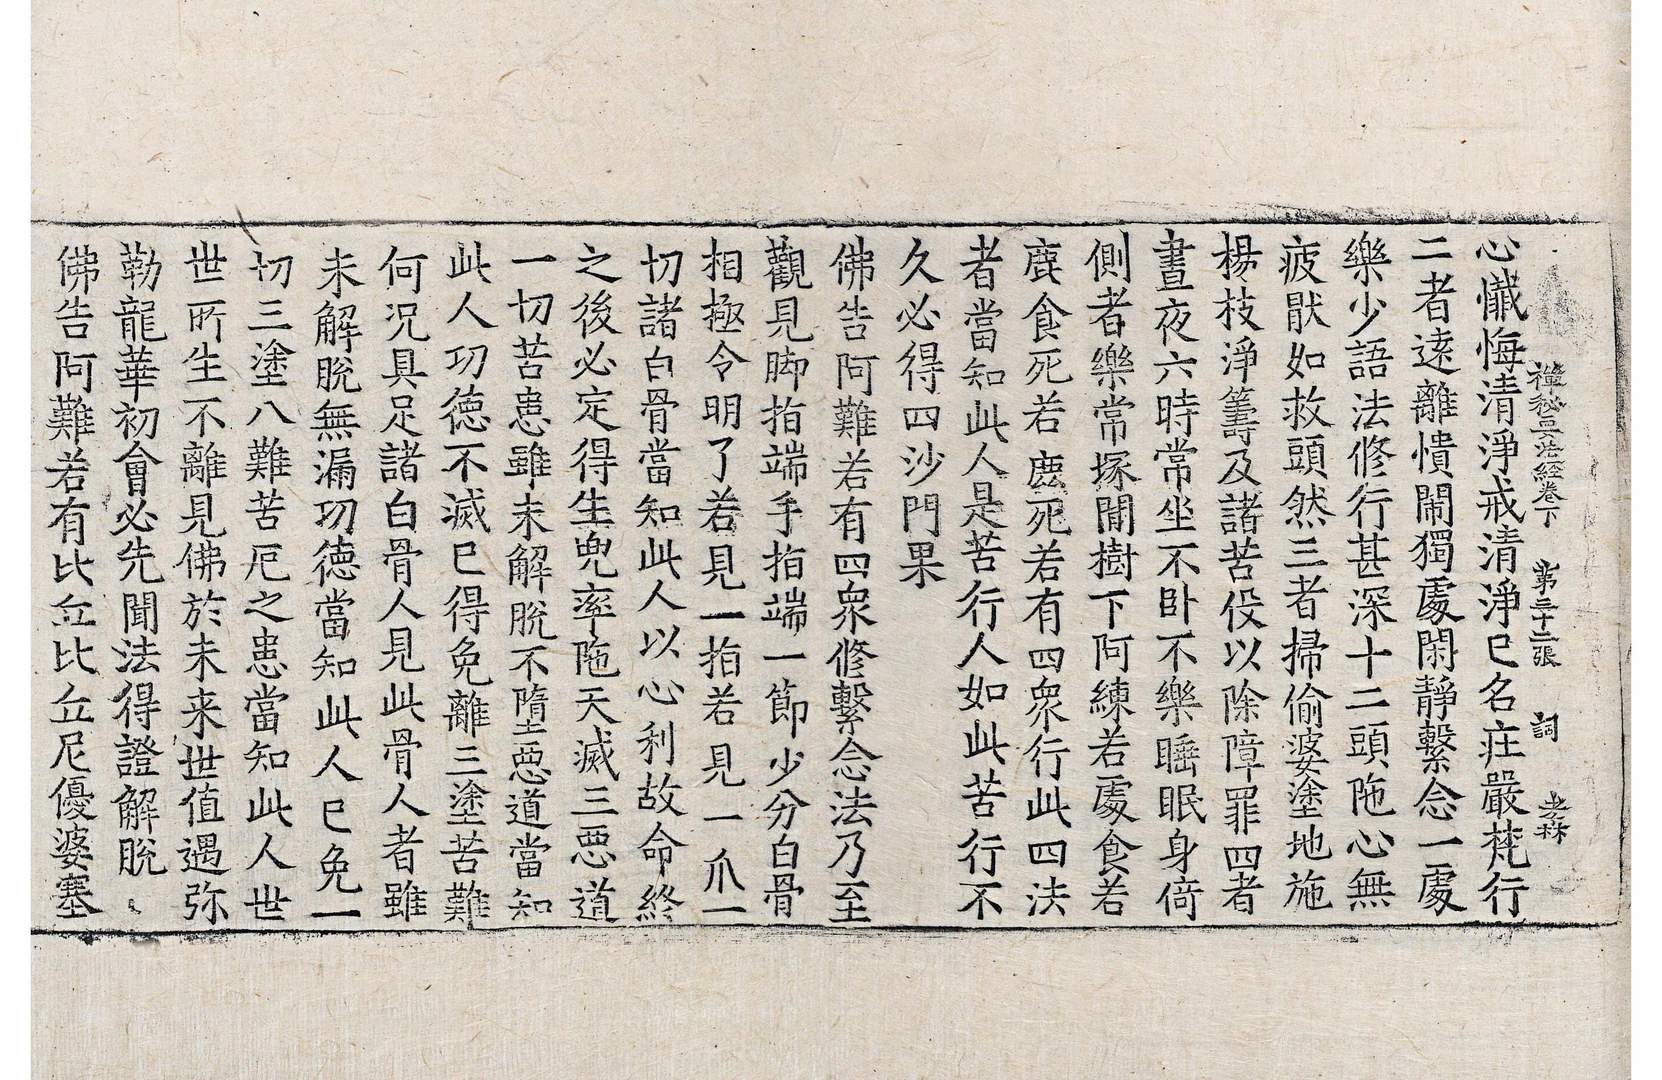 禪秘要法経卷下 第三十二張 詞
心懺悔清淨戒清淨已名莊嚴梵行
二者遠離憒閙獨處閑靜繫念一處
樂少語法修行甚深十二頭陁心無
疲猒如救頭然三者掃偷婆塗地施
楊枝淨籌及諸苦伇以除障罪四者
晝夜六時常坐不卧不樂睡眠身倚
側者樂常塚間樹下阿練若處食若
鹿食死若鹿死若有四衆行此四法
者當知此人是苦行人如此苦行不
久必得四沙門果
佛告阿難若有四衆修繫念法乃至
觀見脚指端手指端一節少分白骨
相極令明了若見一指若見一爪一
切諸白骨當知此人以心利故命終
之後必定得生兜率陁天滅三惡道
一切苦患雖未解脫不墮惡道當知
此人功德不滅已得免離三塗苦難
何況具足諸白骨人見此骨人者雖
未解脫無漏功德當知此人已免一
切三塗八難苦厄之患當知此人世
世所生不離見佛於未来世值遇弥
勒龍華初會必先聞法得證解脫
佛告阿難若有比丘比丘尼優婆塞